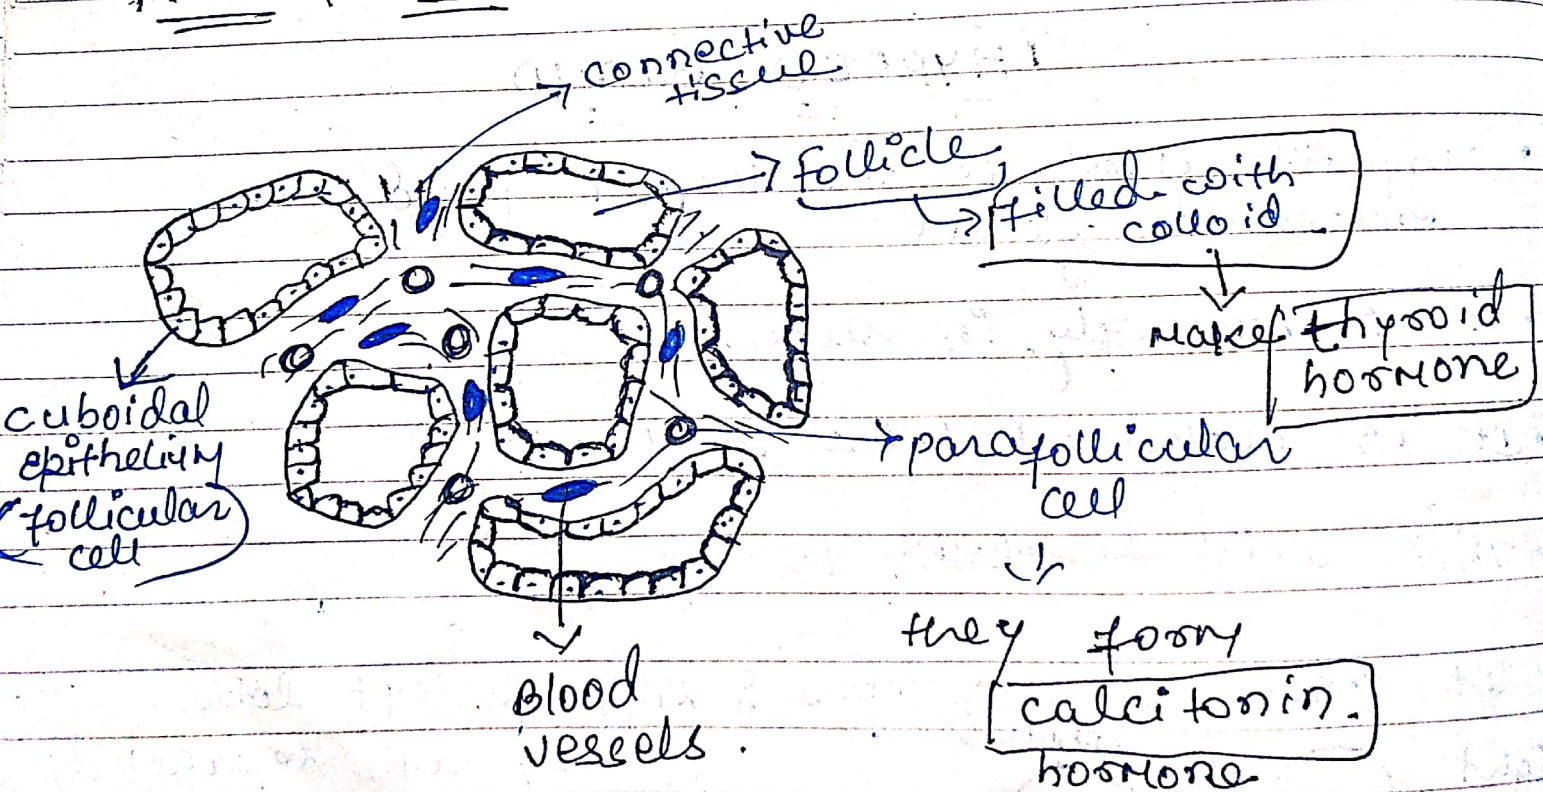 connective
tissue
Follicle
filled with
colloid
Makes thyroid
hormone
cuboidal
epithelium
(follicular
cell
parafollicular
cell
they form
calcitonin.
hormone
Blood
vessels.